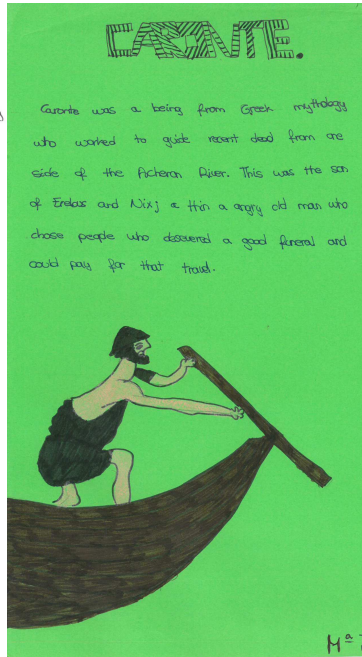 CARONTE.
Caronte was a being from Greek mythology
who worked to guide recent dead from one
side of the Acheron River. This was the son
of Erebus and Nix; a thin a angry old man who
chose people who deserved a good funeral and
could pay for that travel.
Mª